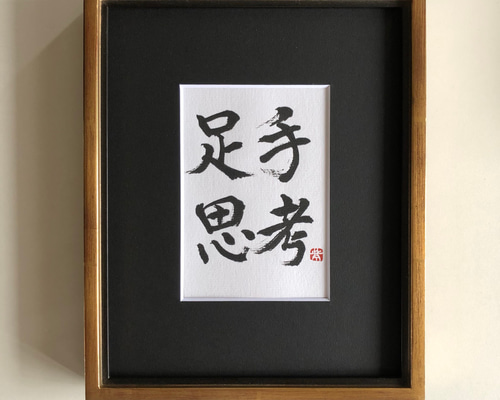 手考
足思